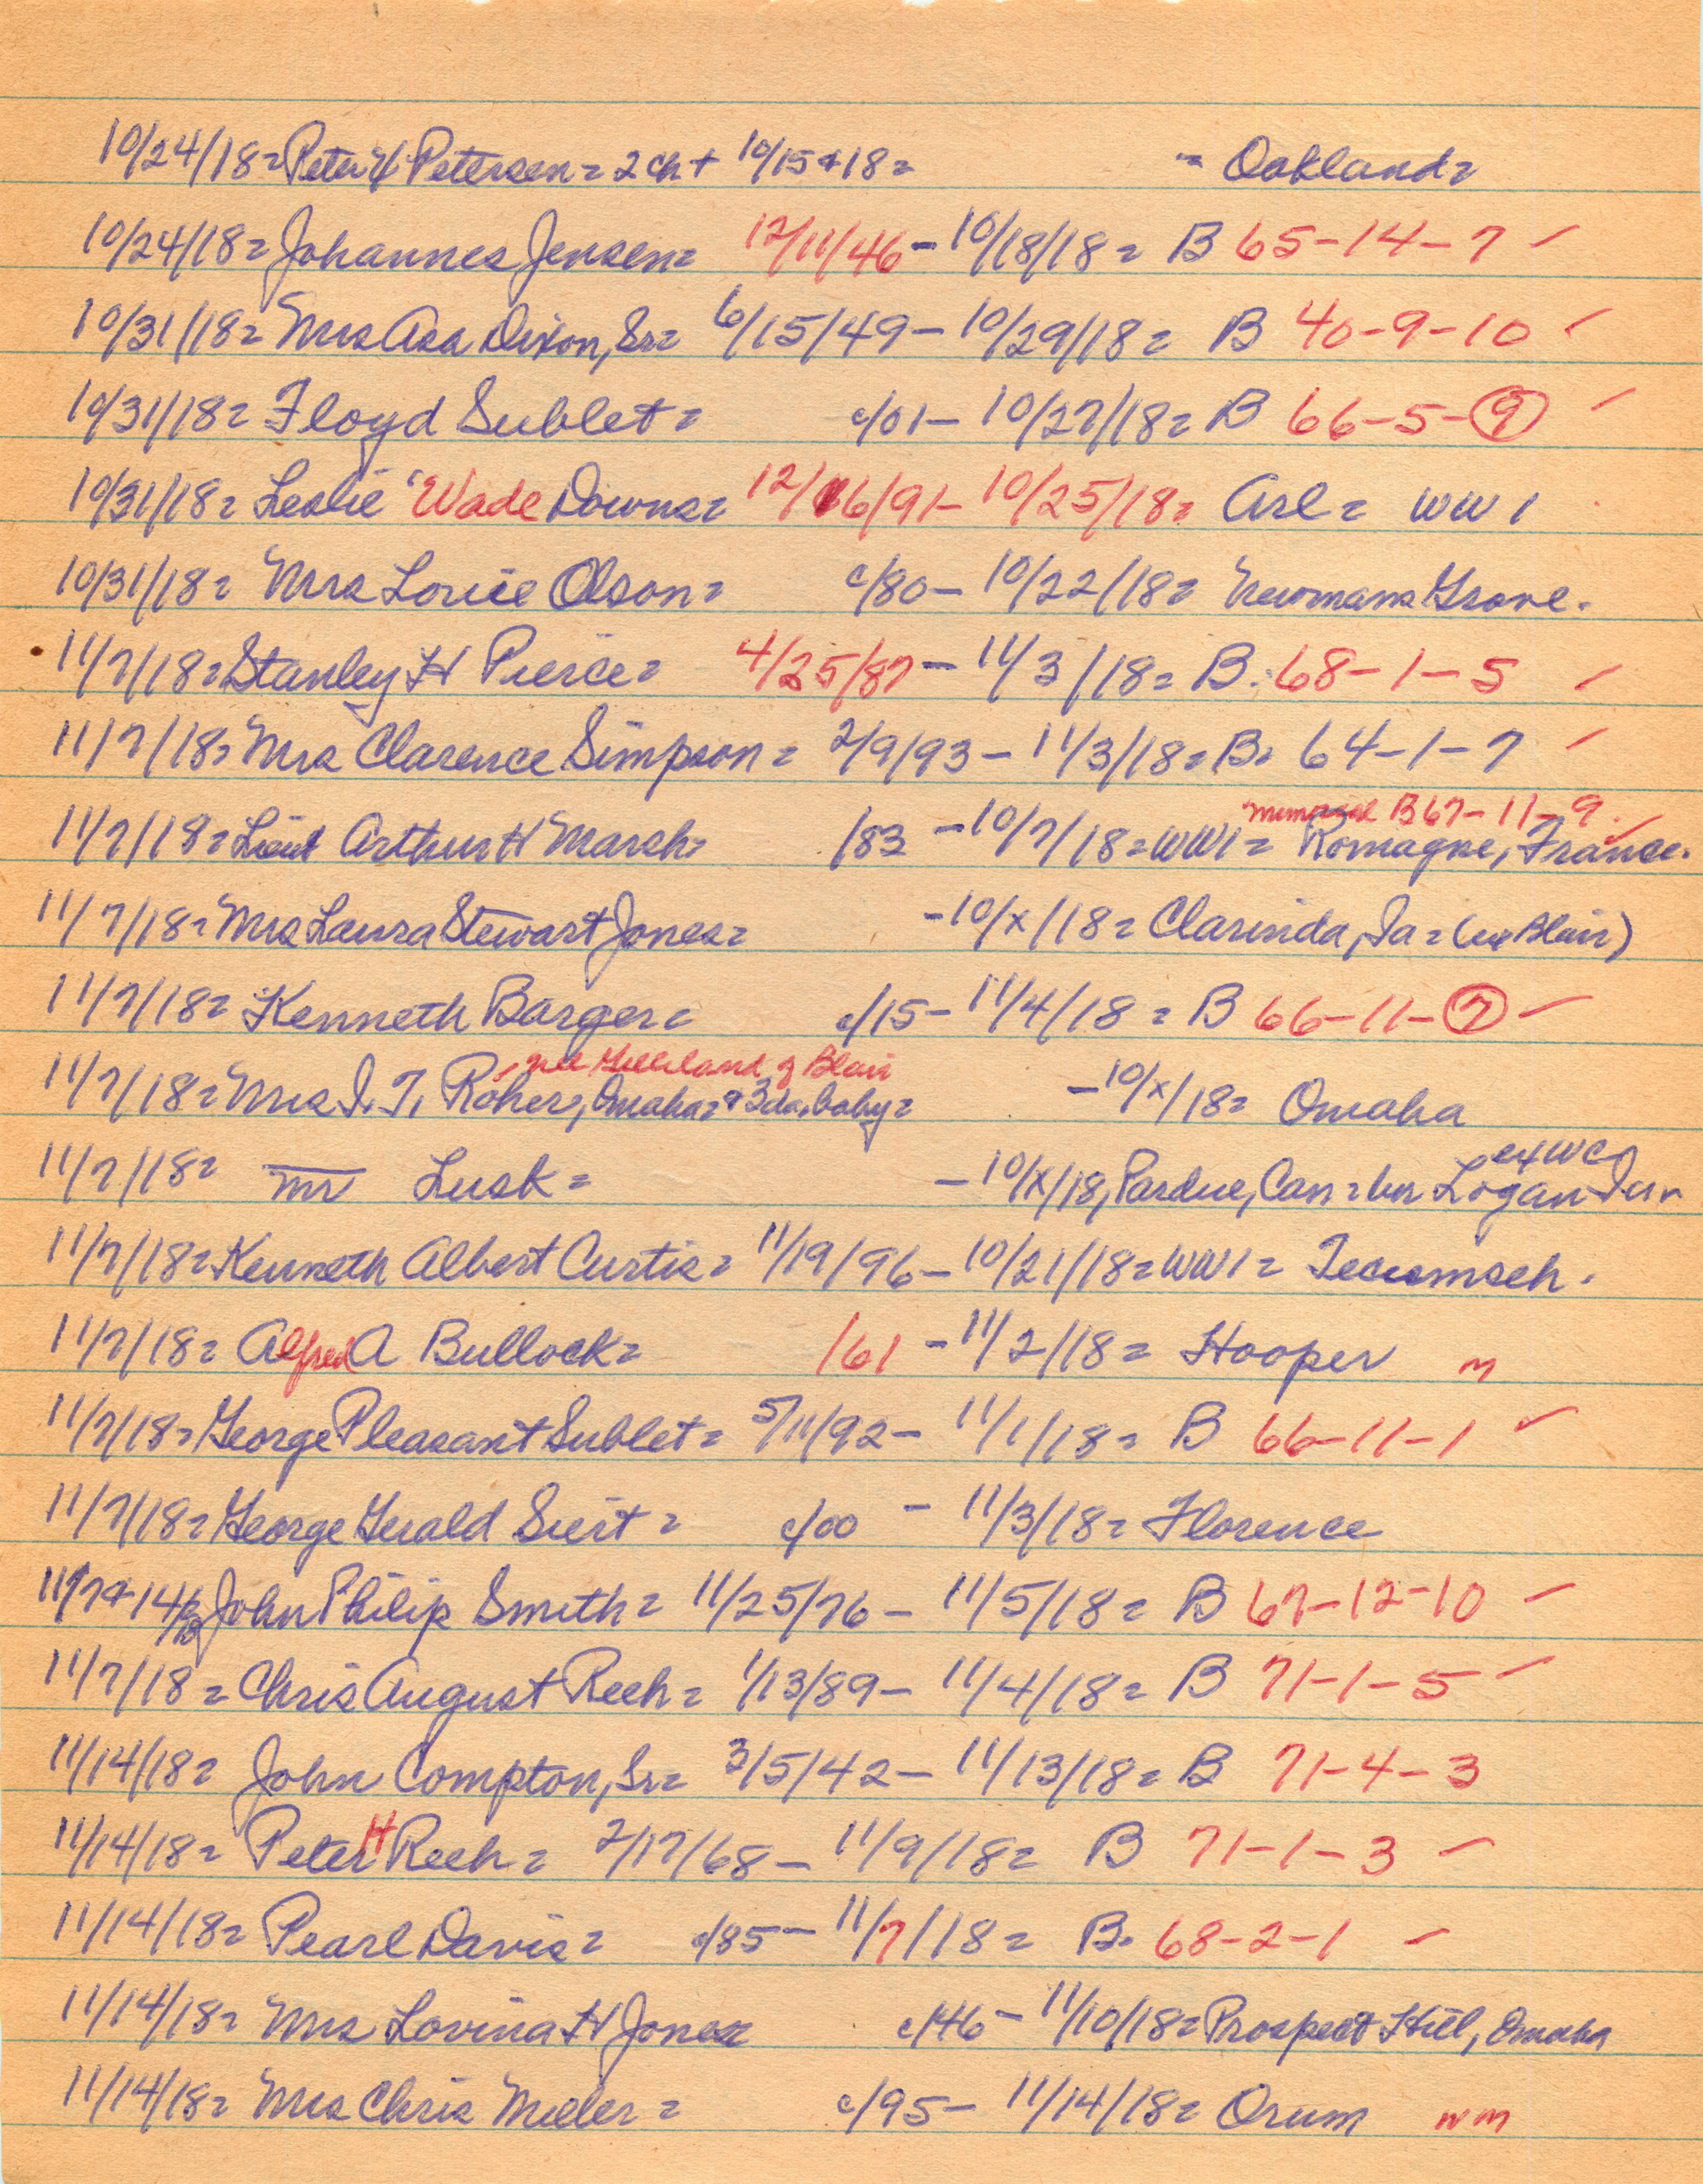 10/24/18= Peter H Petersen= 2 ch + 10/15+18= = Oakland=
10/24/18= Johannes Jensen= 12/11/46 - 10/18/18= B 65-14-7 ✓
10/31/18= Mrs Asa Dixon, Sr= 6/15/49 - 10/29/18= B 40-9-10 ✓
10/31/18= Floyd Sublet= c/01 - 10/27/18= B 66-5-9 ✓
10/31/18= Leslie Wade Downs= 12/16/91 - 10/25/18= Arl= WW1
10/31/18= Mrs Louie Olson= c/80 - 10/22/18= Newmans Grove.
11/7/18= Stanley H Pierce= 4/25/87 - 11/3/18= B. 68-1-5 ✓
11/7/18= Mrs Clarence Simpson= 2/9/93 - 11/3/18= B. 64-1-7 ✓
memorial B67-11-9. ✓
11/7/18= Lieut Arthur H Marsh= /83 - 10/7/18= WW1= Romagne, France.
11/7/18= Mrs Laura Stewart Jones= - 10/x/18= Clarinda, Ia= (ex Blair)
11/7/18= Kenneth Barger= c/15 - 11/4/18= B 66-11-7 ✓
nee Gilliland of Blair
11/7/18= Mrs I. T. Roher, Omaha= + 3 da. baby= - 10/x/18= Omaha
ex WC
11/7/18= Mr Lusk= - 10/x/18, Pardue, Can= bur Logan
11/7/18= Kenneth Albert Curtis= 11/19/96 - 10/21/18= WW1= Tecumseh.
11/7/18= Alfred A Bullock= /61 - 11/2/18= Hooper m
11/7/18= George Pleasant Sublet= 5/11/92 - 11/1/18= B 66-11-1 ✓
11/7/18= George Gerald Suit= c/00 - 11/3/18= Florence
11/7+14/18 John Philip Smith= 11/25/76 - 11/5/18= B 67-12-10 ✓
11/7/18= Chris August Reeh= 1/13/89 - 11/4/18= B 71-1-5 ✓
11/14/18= John Compton, Sr= 3/5/42 - 11/13/18= B 71-4-3
11/14/18= Peter H Reeh= 2/17/68 - 11/9/18= B 71-1-3 ✓
11/14/18= Pearl Davis= c/85 - 11/7/18= B. 68-2-1 ✓
11/14/18= Mrs Lovina H Jones= c/46 - 11/10/18= Prospect Hill, Omaha
11/14/18= Mrs Chris Miller= c/95 - 11/14/18= Orum wm